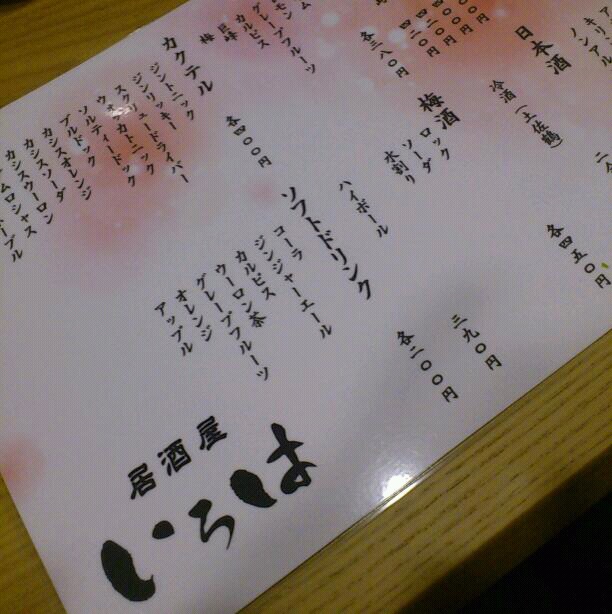 日本酒
冷酒(土佐鶴)
梅酒
ロック
ソーダ
水割り
各四五〇円
ハイボール
三九〇円
各三八〇円
グレープフルーツ
カルピス
巨峰
梅
カクテル
ジントニック
ジンリッキー
スクリュードライバー
ウォッカトニック
ソルティードック
ブルドック
カシスオレンジ
カシスソーダ
カシスウーロン
各四〇〇円
ソフトドリンク
コーラ
ジンジャーエール
カルピス
ウーロン茶
グレープフルーツ
オレンジ
アップル
各二〇〇円
居酒屋
いろは